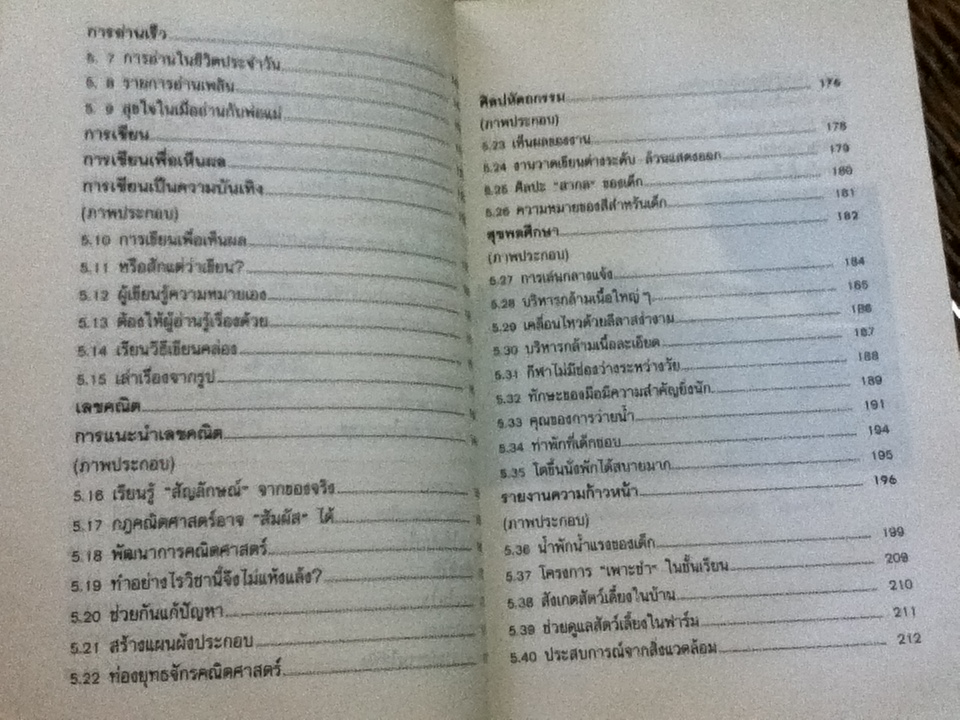 การอ่านเร็ว
5. 7 การอ่านในชีวิตประจำวัน
5. 8 รายการอ่านเพลิน
5. 9 สุขใจในเมื่ออ่านกับพ่อแม่
การเขียน
การเขียนเพื่อเห็นผล
การเขียนเป็นความบันเทิง
(ภาพประกอบ)
5.10 การเขียนเพื่อเห็นผล
5.11 หรือสักแต่ว่าเขียน?
5.12 ผู้เขียนรู้ความหมายเอง
5.13 ต้องให้ผู้อ่านรู้เรื่องด้วย
5.14 เรียนวิธีเขียนคล่อง
5.15 เล่าเรื่องจากรูป
เลขคณิต
การแนะนำเลขคณิต
(ภาพประกอบ)
5.16 เรียนรู้ "สัญลักษณ์" จากของจริง
5.17 กฎคณิตศาสตร์อาจ "สัมผัส" ได้
5.18 พัฒนาการคณิตศาสตร์
5.19 ทำอย่างไรวิชานี้จึงไม่แห้งแล้ง?
5.20 ช่วยกันแก้ปัญหา
5.21 สร้างแผนผังประกอบ
5.22 ท่องยุทธจักรคณิตศาสตร์
ศิลปหัตถกรรม 176
(ภาพประกอบ)
5.23 เห็นผลของงาน 178
5.24 งานวาดเขียนต่างระดับ ล้วนแสดงออก 179
5.25 ศิลปะ "สากล" ของเด็ก 180
5.26 ความหมายของสีสำหรับเด็ก 181
สุขพลศึกษา 182
(ภาพประกอบ)
5.27 การเล่นกลางแจ้ง 184
5.28 บริหารกล้ามเนื้อใหญ่ ๆ 185
5.29 เคลื่อนไหวด้วยลีลาสง่างาม 186
5.30 บริหารกล้ามเนื้อละเอียด 187
5.31 กีฬาไม่มีช่องว่างระหว่างวัย 188
5.32 ทักษะของมือมีความสำคัญยิ่งนัก 189
5.33 คุณของการว่ายน้ำ 191
5.34 ท่าพักที่เด็กชอบ 194
5.35 โตขึ้นนั่งพักได้สบายมาก 195
รายงานความก้าวหน้า 196
(ภาพประกอบ)
5.36 น้ำพักน้ำแรงของเด็ก 199
5.37 โครงการ "เพาะชำ" ในชั้นเรียน 209
5.38 สังเกตสัตว์เลี้ยงในบ้าน 210
5.39 ช่วยดูแลสัตว์เลี้ยงในฟาร์ม 211
5.40 ประสบการณ์จากสิ่งแวดล้อม 212